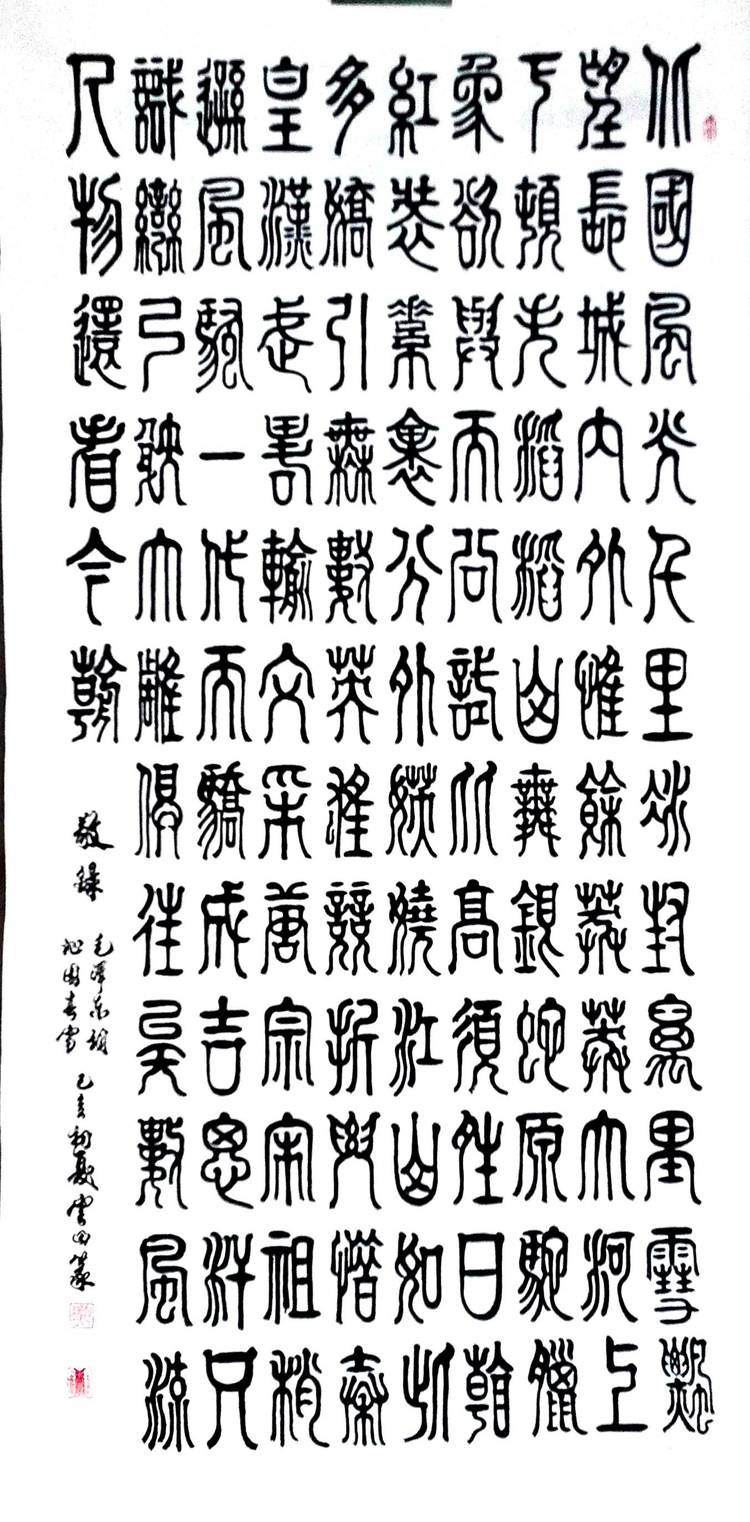 北國風光千里冰封萬里雪飄
望長城內外惟餘莽莽大河上
下頓失滔滔山舞銀蛇原馳蠟
象欲與天公試比高須晴日看
紅裝素裹分外妖嬈江山如此
多嬌引無數英雄競折腰惜秦
皇漢武略輸文采唐宗宋祖稍
遜風騷一代天驕成吉思汗只
識彎弓射大雕俱往矣數風流
人物還看今朝
敬錄
毛澤東詞
沁園春雪
己亥初夏雲田篆